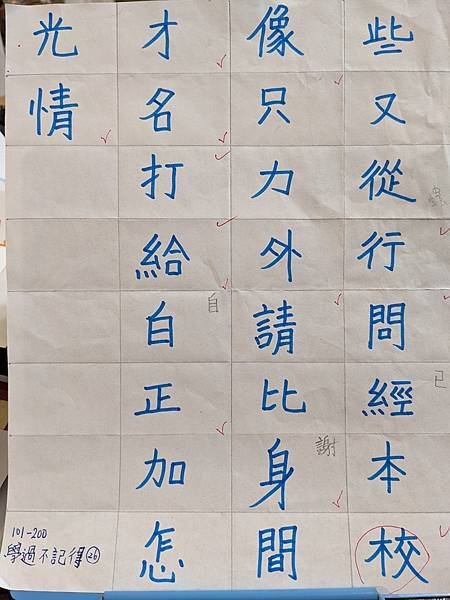 些又從行問經本校
已
像只力外請比身間
謝
才名打給白正加怎
自
光情
101-200
學過不記得㉖